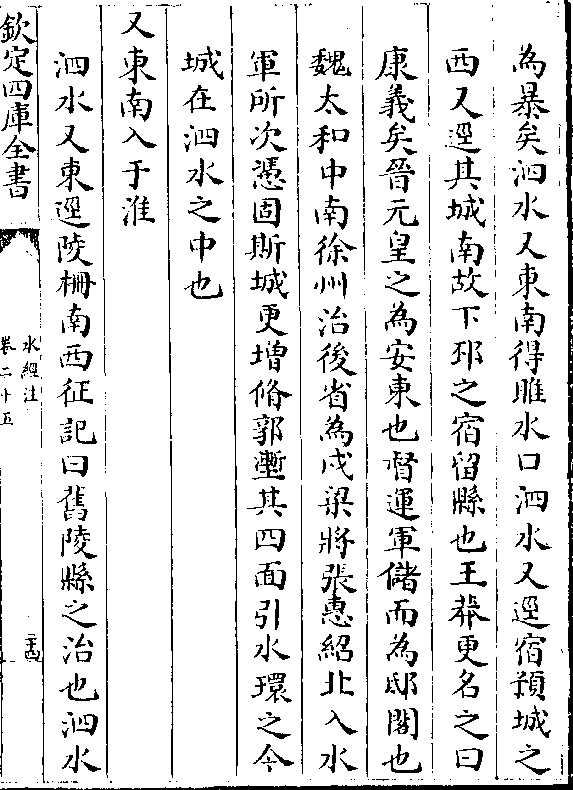 為暴矣泗水又東南得睢水口泗水又逕宿預城之
西又逕其城南故下邳之宿留縣也王莽更名之曰
康義矣晉元皇之為安東也督運軍儲而為邸閣也
魏太和中南徐州治後省為戍梁將張惠紹北入水
軍所次憑固斯城更增脩郭壍其四面引水環之今
城在泗水之中也
又東南入于淮
泗水又東逕陵柵南西征記曰舊陵縣之治也泗水
欽定四庫全書
水經注
卷二十五
二十四